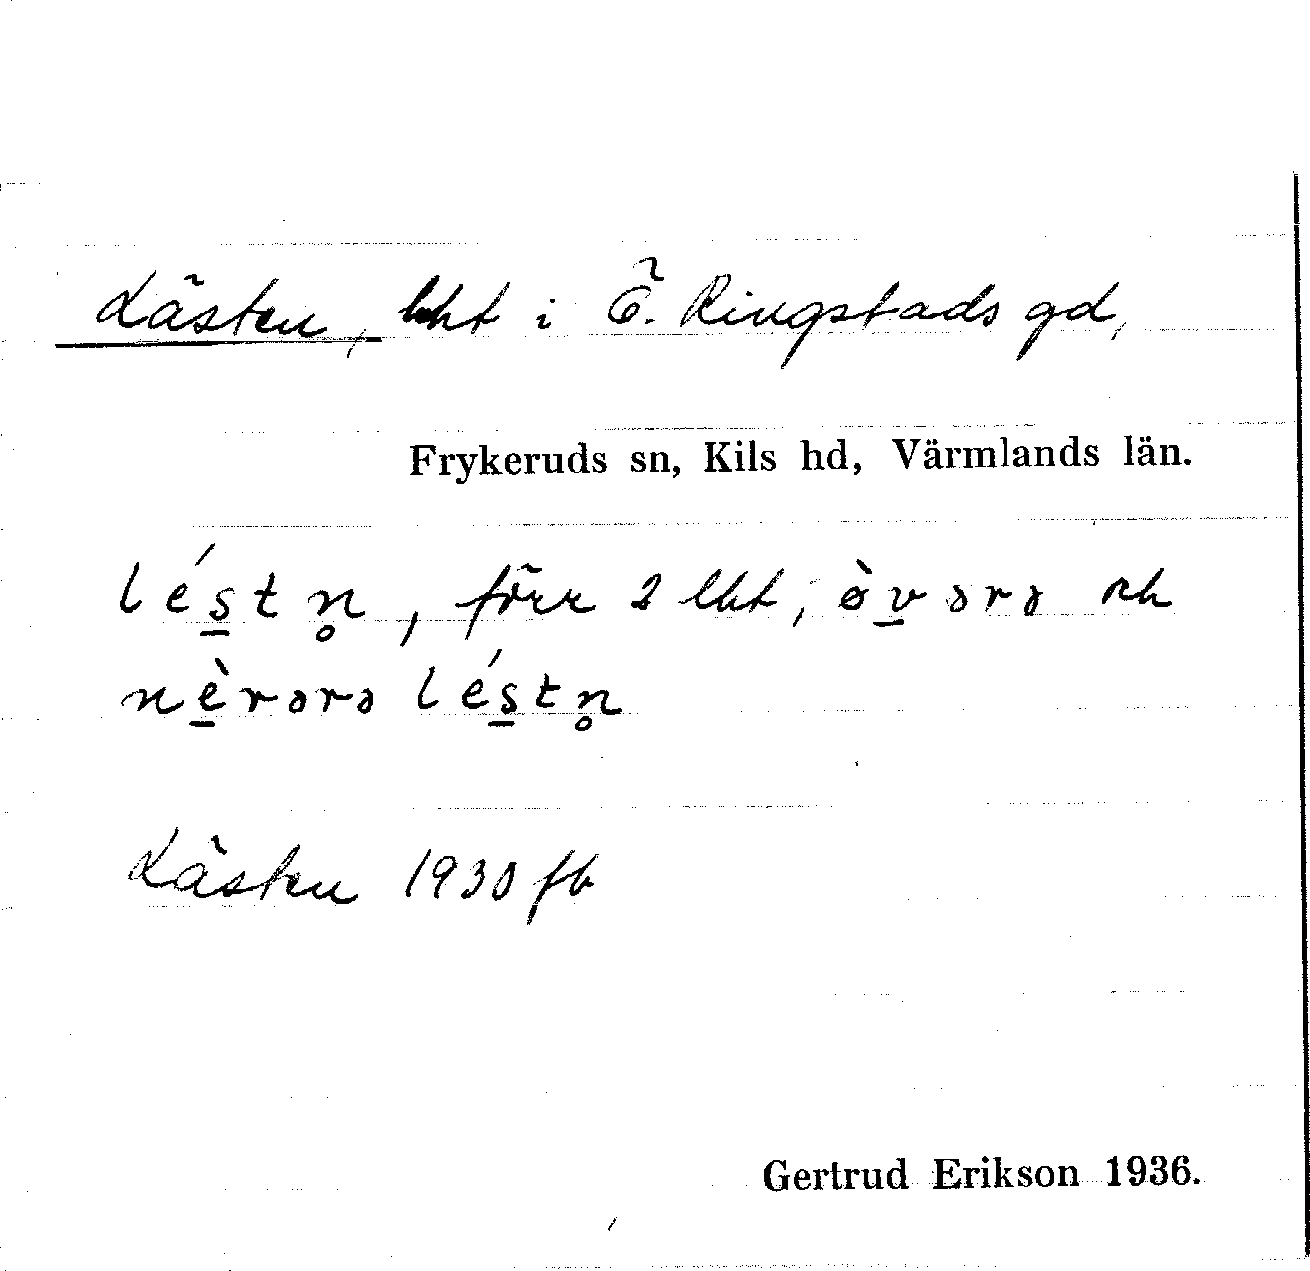 Lästen, lht i Ö. Ringstads gd,
Frykeruds sn, Kils hd, Värmlands län.
lés̲tn̥, förr 2 lht, øv̲̀ərə och
nè̲rərə lés̲tn̥
Lästen 1930 fb
Gertrud Erikson 1936.